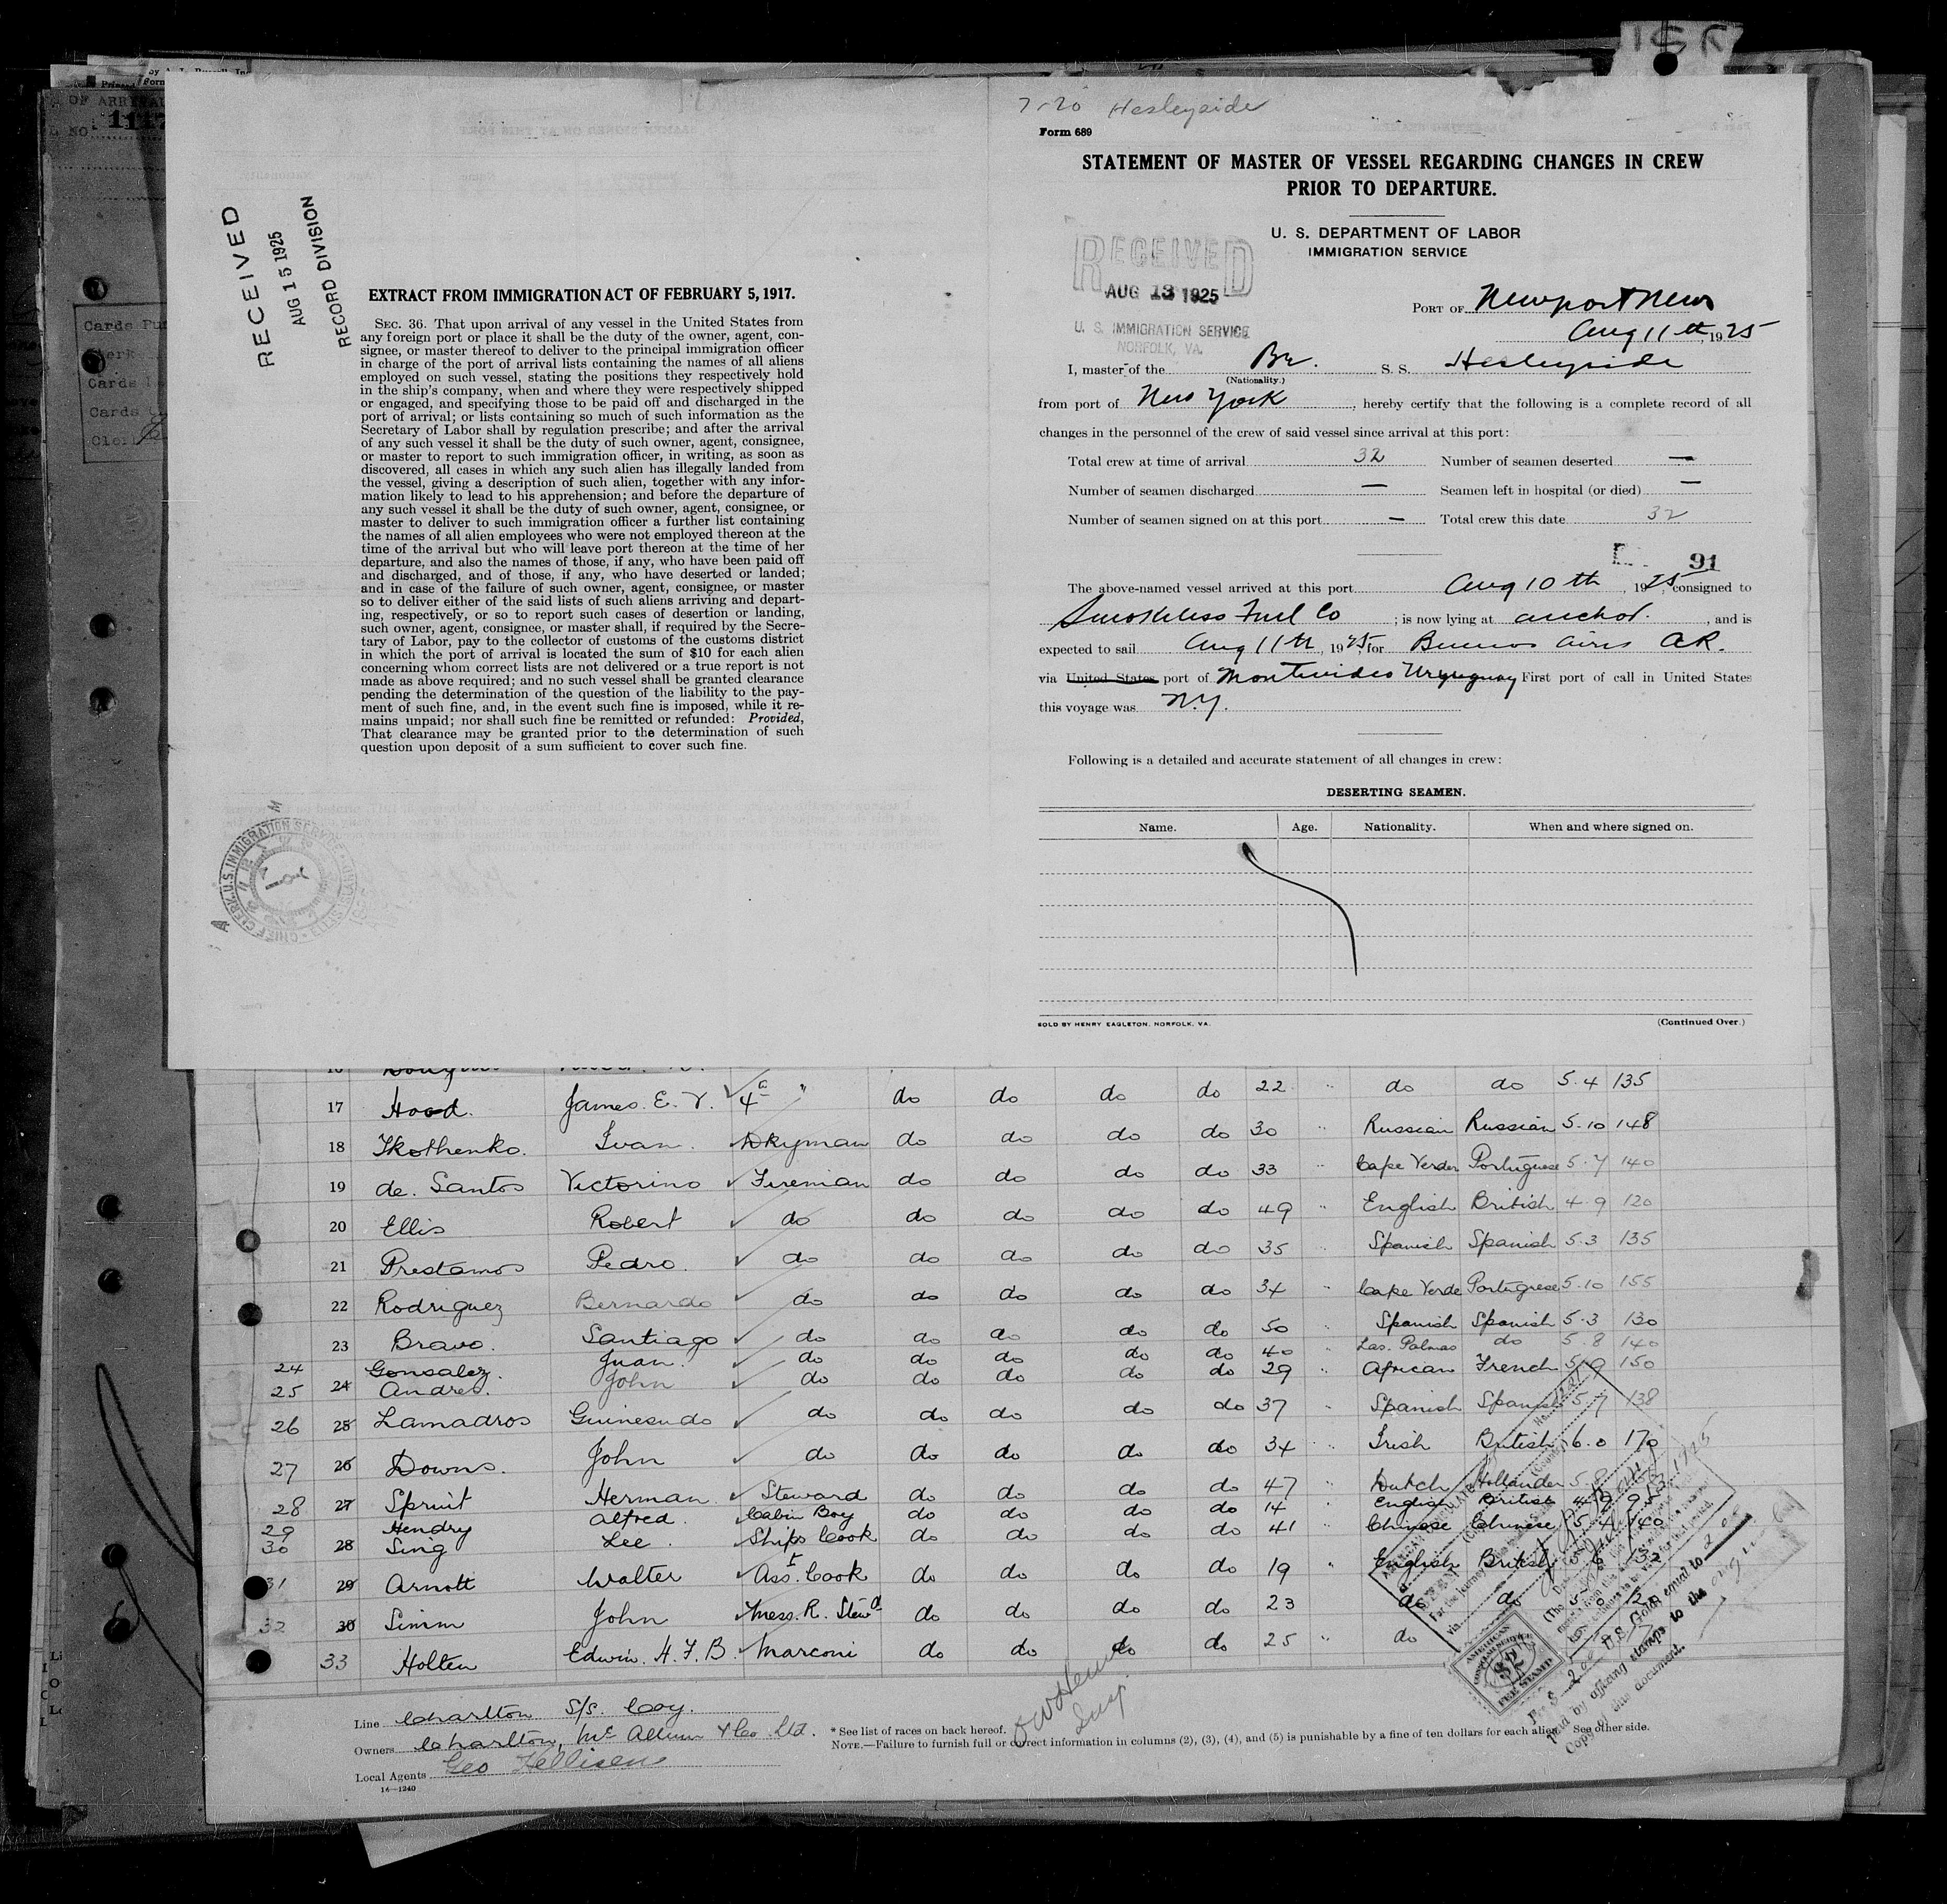 OF ARRIVAL
NO. 1147
Cards Pu
Clerk
Cards
Cards
Cler
RECEIVED
AUG 15 1925
RECORD DIVISION
EXTRACT FROM IMMIGRATION ACT OF FEBRUARY 5, 1917.
SEC. 36. That upon arrival of any vessel in the United States from
any foreign port or place it shall be the duty of the owner, agent, con-
signee, or master thereof to deliver to the principal immigration officer
in charge of the port of arrival lists containing the names of all aliens
employed on such vessel, stating the positions they respectively hold
in the ship's company, when and where they were respectively shipped
or engaged, and specifying those to be paid off and discharged in the
port of arrival; or lists containing so much of such information as the
Secretary of Labor shall by regulation prescribe; and after the arrival
of any such vessel it shall be the duty of such owner, agent, consignee,
or master to report to such immigration officer, in writing, as soon as
discovered, all cases in which any such alien has illegally landed from
the vessel, giving a description of such alien, together with any infor-
mation likely to lead to his apprehension; and before the departure of
any such vessel it shall be the duty of such owner, agent, consignee, or
master to deliver to such immigration officer a further list containing
the names of all alien employees who were not employed thereon at the
time of the arrival but who will leave port thereon at the time of her
departure, and also the names of those, if any, who have been paid off
and discharged, and of those, if any, who have deserted or landed;
and in case of the failure of such owner, agent, consignee, or master
so to deliver either of the said lists of such aliens arriving and depart-
ing, respectively, or so to report such cases of desertion or landing,
such owner, agent, consignee, or master shall, if required by the Secre-
tary of Labor, pay to the collector of customs of the customs district
in which the port of arrival is located the sum of $10 for each alien
concerning whom correct lists are not delivered or a true report is not
made as above required; and no such vessel shall be granted clearance
pending the determination of the question of the liability to the pay-
ment of such fine, and, in the event such fine is imposed, while it re-
mains unpaid; nor shall such fine be remitted or refunded: Provided,
That clearance may be granted prior to the determination of such
question upon deposit of a sum sufficient to cover such fine.
CHIEF CLERK, U.S. IMMIGRATION SERVICE ELLIS ISLAND
7-20 Hesleyside
Form 689
STATEMENT OF MASTER OF VESSEL REGARDING CHANGES IN CREW
PRIOR TO DEPARTURE.
U. S. DEPARTMENT OF LABOR
IMMIGRATION SERVICE
RECEIVED
AUG 13 1925
U. S. IMMIGRATION SERVICE
NORFOLK, VA.
PORT OF Newport News
Aug 11th, 1925
I, master of the Br. S. S. Hesleyside
(Nationality.)
from port of New York, hereby certify that the following is a complete record of all
changes in the personnel of the crew of said vessel since arrival at this port:
Total crew at time of arrival 32 Number of seamen deserted —
Number of seamen discharged — Seamen left in hospital (or died) —
Number of seamen signed on at this port — Total crew this date 32
91
The above-named vessel arrived at this port Aug 10th, 1925, consigned to
Smokeless Fuel Co; is now lying at anchor., and is
expected to sail Aug 11th, 1925, for Buenos Aires AR.
via United States port of Montevideo Uruguay First port of call in United States
this voyage was N.Y.
Following is a detailed and accurate statement of all changes in crew:
DESERTING SEAMEN.
Name. Age. Nationality. When and where signed on.
SOLD BY HENRY EAGLETON, NORFOLK, VA. (Continued Over.)
17 Hood. James. E. V. 4 " do do do do 22 " do do 5.4 135
18 Tkothenko. Ivan. Dkyman do do do do 30 " Russian Russian 5.10 148
19 de. Santos Victorino Fireman do do do do 33 " Cape Verder Portuguese 5.7 140
20 Ellis Robert do do do do do 49 " English British 4.9 120
21 Prestamos Pedro. do do do do do 35 " Spanish Spanish 5.3 135
22 Rodriguez Bernardo do do do do do 34 " Cape Verde Portugese 5.10 155
23 Bravo. Santiago do do do do do 50 " Spanish Spanish 5.3 130
24 Gonsalez. Juan. do do do do do 40 " Las. Palmas do 5.8 140
25 24 Andres. John do do do do do 29 " African French 5.9 150
26 25 Lamadros Guinesndo do do do do do 37 " Spanish Spanish 5.7 138
27 26 Downs. John do do do do do 34 " Irish British 6.0 170
28 27 Spruit Herman. Steward do do do do 47 " Dutch Hollander 5.8
29 Hendry Alfred. Cabin Boy do do do do 14 " English British 4.9 95
30 28 Sing Lee. Ships Cook do do do do 41 " Chinese Chinese 5.4 140
31 29 Arnott Walter Ass.t Cook do do do do 19 " English British 5.6 132
32 30 Simm John Mess. R. Stewd do do do do 23 do do
33 Holten Edwin. H. F. B. Marconi do do do do 25 " do
AMERICAN
CONSULAR SERVICE
$2
FEE STAMP
U.S. Gold, equal to
paid by affixing stamps to the
Copy of this document.
Line Charlton S/S. Coy.
Owners Charlton, McAllum & Co Ltd.
Local Agents Geo
16—1240
* See list of races on back hereof.
NOTE.—Failure to furnish full or correct information in columns (2), (3), (4), and (5) is punishable by a fine of ten dollars for each alien. See other side.
Insp.